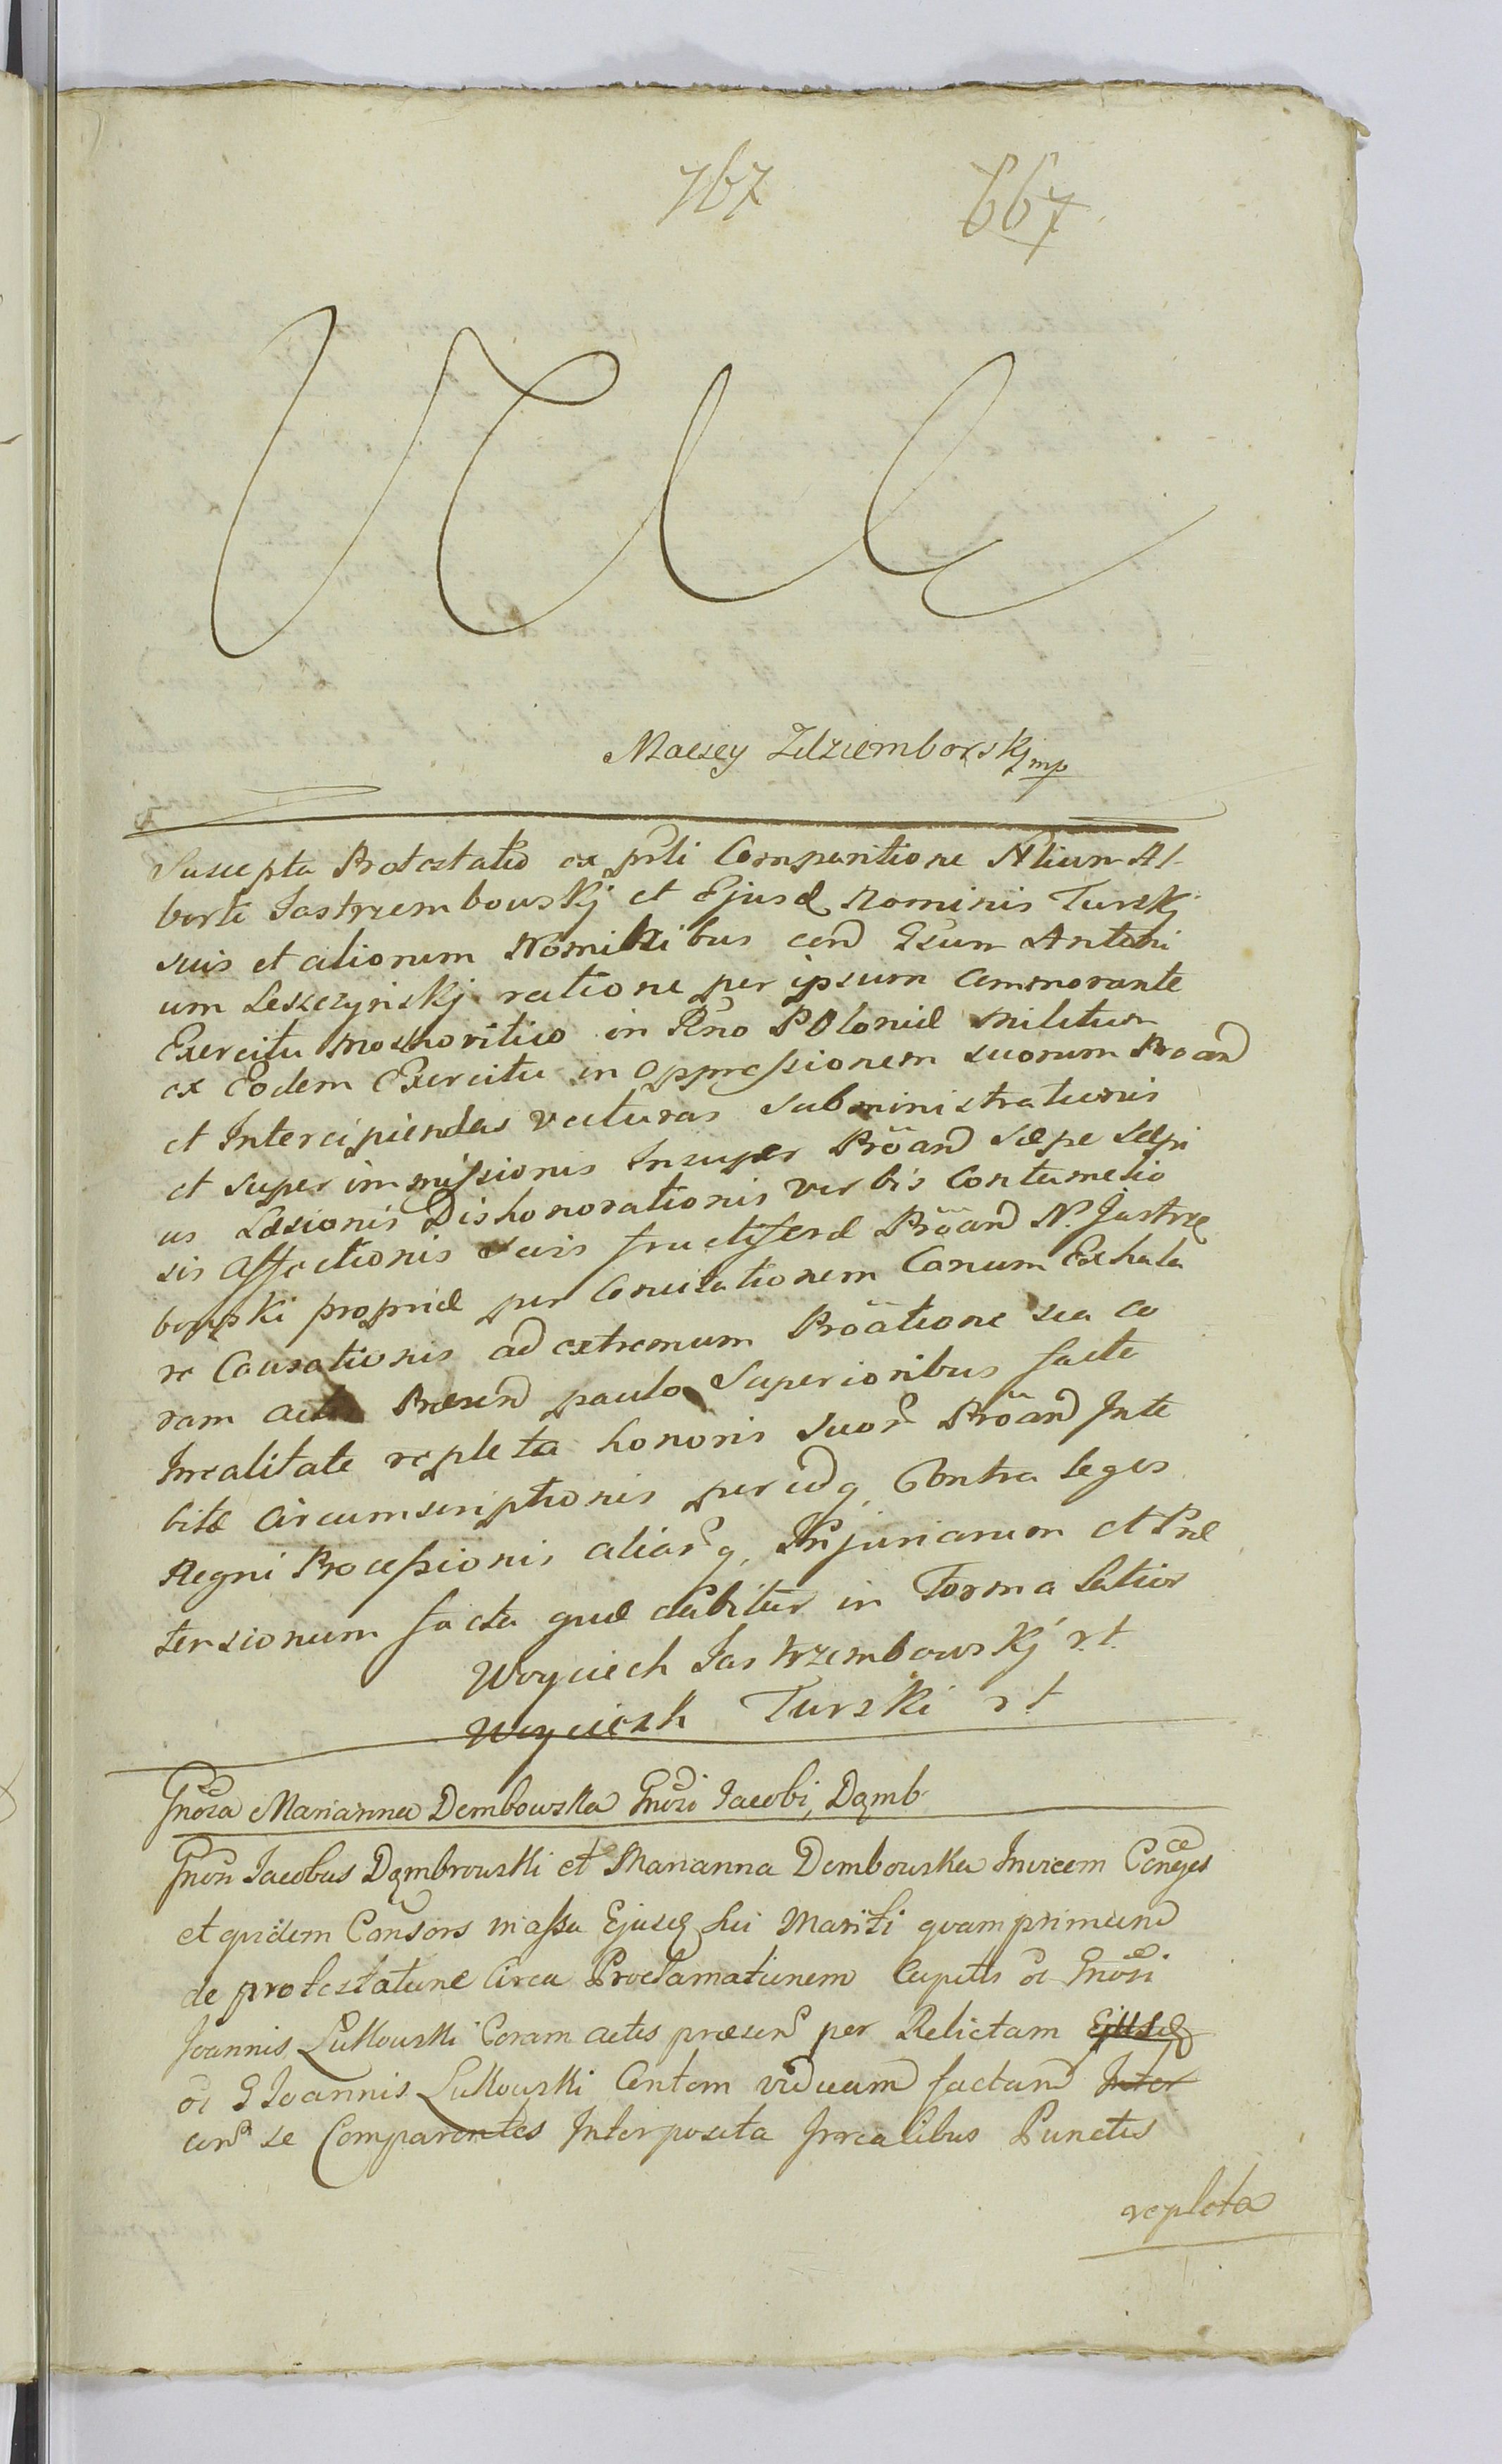 767 667
Maciey Zdziemborskj mp
Suscepta Protestatio ex prti Comparitione Nlium Al-
berti Jastrzembowskj et Ejusd Nominis Turskj
suis et aliorum Nominibus cond Gsum Antoni
um Leszczynskj ratione per ipsum Commorante
Exercitu Moshovitico in Rno Poloniæ militum
ex Eodem Exercitu in Oppressionem suorum Proand
et Intercipiendas vecturas subministrationis
et super immissionis Insuper Pröand sæpe sæpi
us Læsionis Dishonorationis verbis Contumelio
sis Affectionis Suis fructiferæ Pröand N. Jastrzę
bowski propriæ per Concitationem Canum Exhala
re Causationis ad extremum Pröatione sua co
ram actis Præsend paulo Superioribus facta
Irrealitate repleta honoris suor Pröand Inte
bitæ Circumscriptionis per idq Contra leges
Regni Processionis aliarq Injuriarum et Præ
tensionum facta quæ dabitur in Forma latior
Woyciech Jastrzembowskj r.t.
Woyciech Turski r t
Gnosa Marianna Dembowska Gnosi Jacobi Dąmb
Gnosi Jacobus Dąmbrowski et Marianna Dembowska Invicem Conges
et quidem Consors in assa Ejusd sui Mariti quamprimum
de protestatione Circa Proclamationem Capitis ol Gnosi
Joannis Łukowski Coram actis præsen per Relictam Ejusd
ol G Joannis Lukowski Centem viduam factam Inter
con se Comparentes Interposita Irrealibus Punctis
repleta